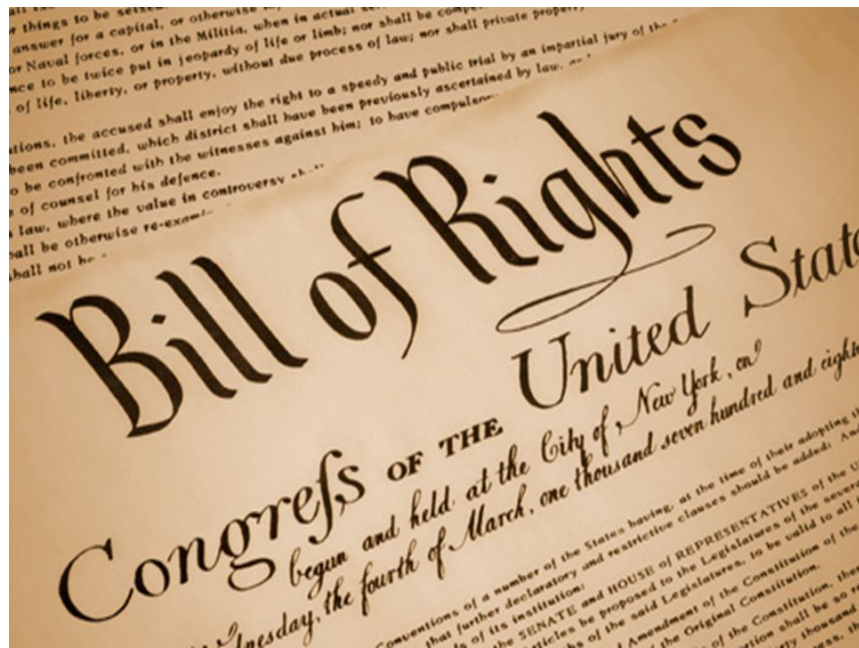 things to be seized
answer for a capital, or otherwise
or Naval forces, or in the Militia, when in actual
nce to be twice put in jeopardy of life or limb; nor shall be compe
of life, liberty, or property, without due process of law; nor shall private property
tions, the accused shall enjoy the right to a speedy and public trial by an impartial jury of the
been committed, which district shall have been previously ascertained by law,
o be confronted with the witnesses against him; to have compulsor
s of counsel for his defence.
law, where the value in controversy
all be otherwise re-exami
hall not be
Bill of Rights
Congreſs OF THE United State
begun and held at the City of New York, on
nesday, the fourth of March, one thousand seven hundred and eight
Conventions of a number of the States having, at the time of their adopting
that further declaratory and restrictive clauses should be added: And
of its institution:
the SENATE and HOUSE of REPRESENTATIVES of the U
articles be proposed to the Legislatures of the several
of the said Legislatures, to be valid to all
Amendment of the Constitution of the
the Original Constitution.
of the Constitution, there
shall be so
thousand